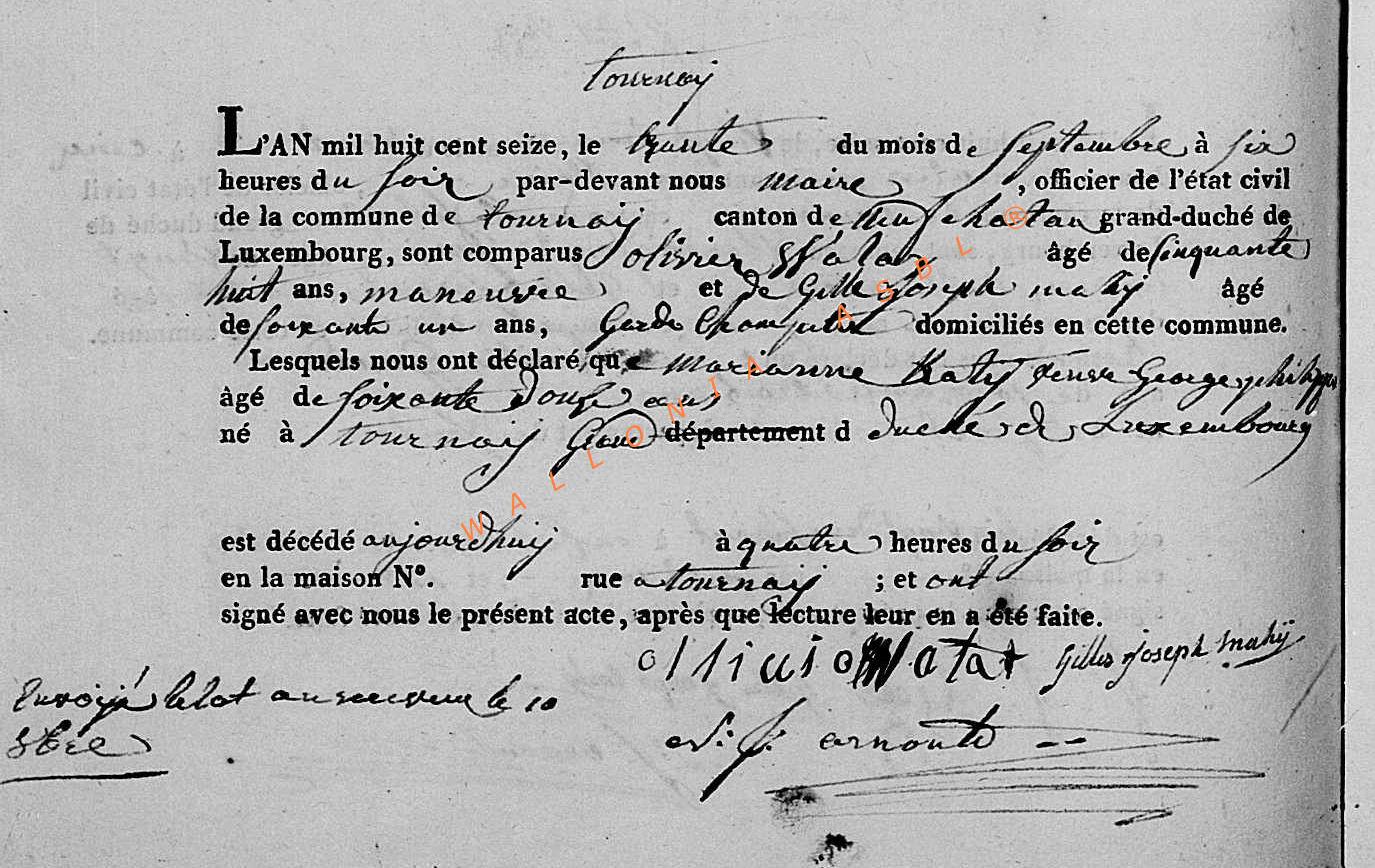 tournay
L'AN mil huit cent seize, le trante du mois de Septembre à six
heures du soir par-devant nous maire , officier de l'état civil
de la commune de tournay canton de Neufchatau grand-duché de
Luxembourg, sont comparus olivier Watar âgé de sinquante
huit ans, maneuvre et de Gille Joseph mahy âgé
de soixante un ans, Garde Champetre domiciliés en cette commune.
Lesquels nous ont déclaré que marianne Katy veuve George philippe
âgé de soixante douse ans
né à tournay Grand département d duché de Luxembourg
est décédé aujourdhuy à quatre heures du soir
en la maison N°. rue a tournay ; et ont
signé avec nous le présent acte, après que lecture leur en a été faite.
Gilles Joseph mahÿ
Envoyé le 10
8bre
arnould
WALLONIA ASBL ®